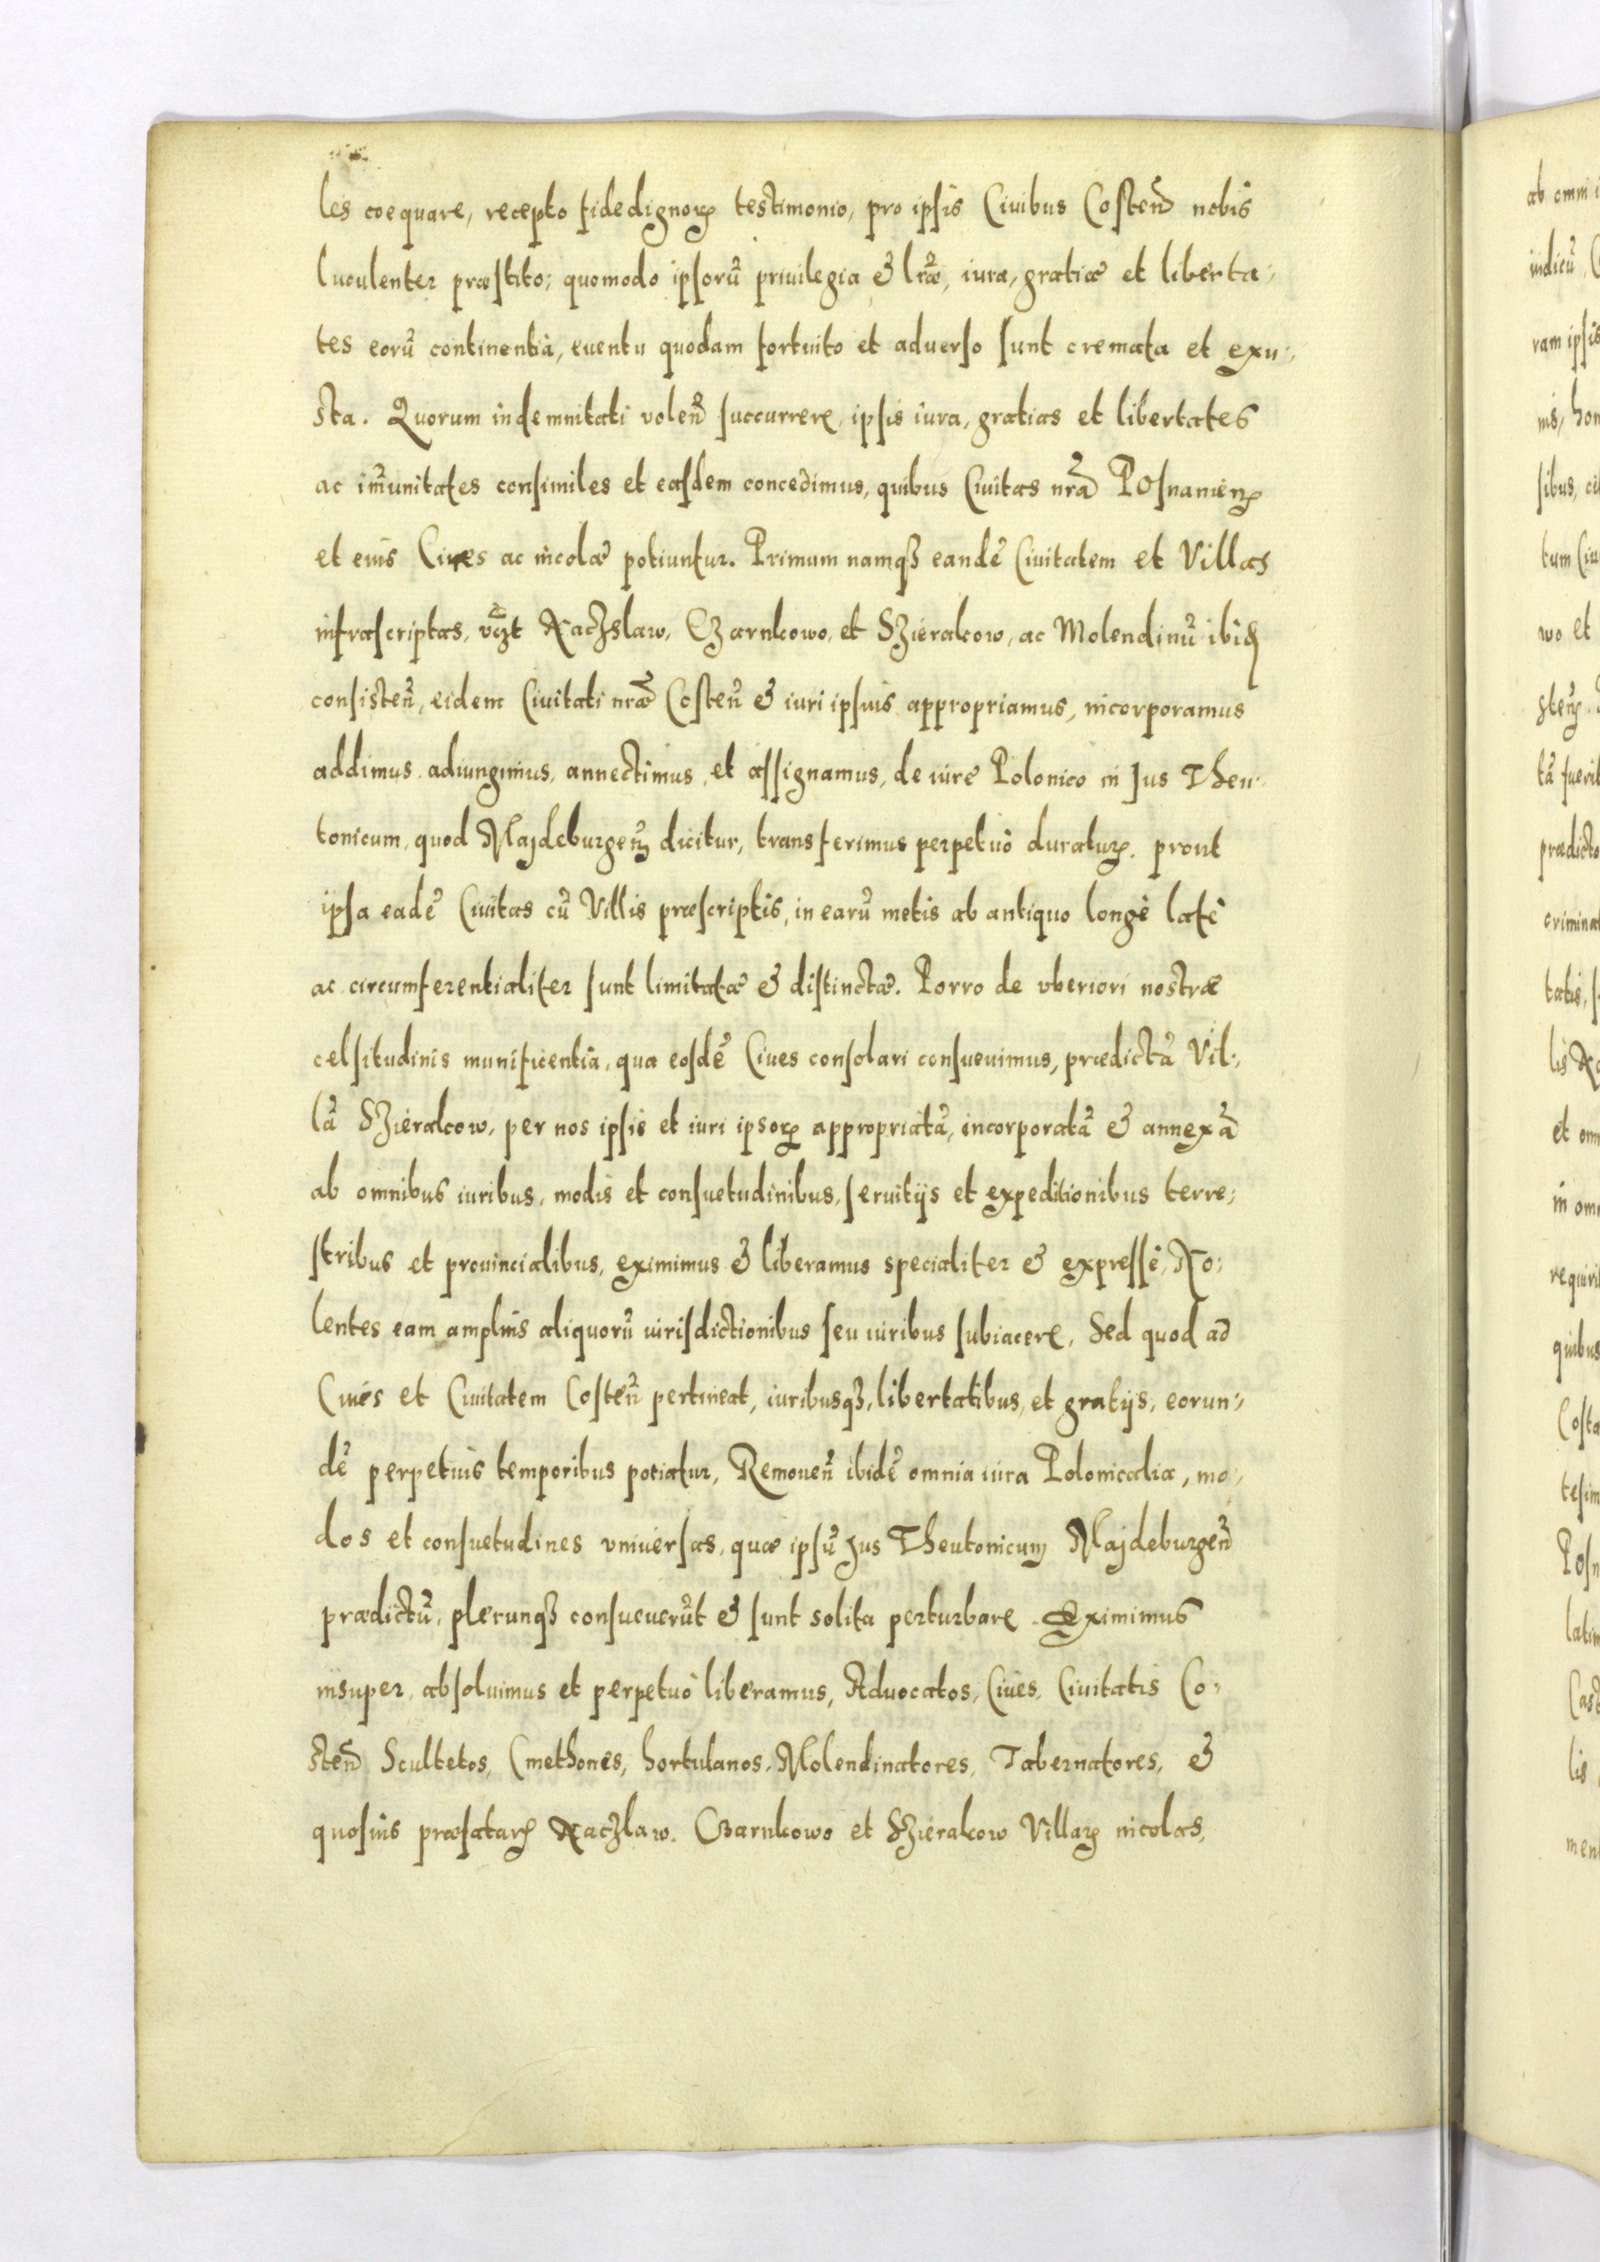 les coequare, recepto fidedignoꝝ testimonio, pro ipsis Ciuibus Costeñ nobis
luculenter præstito; quomodo ipsorũ priuilegia & lr̃æ, iura, gratiæ et liberta-
tes eorũ continentia, euentu quodam fortuito et aduerso sunt cremata et exu-
sta. Quorum indemnitati voleñ succurrere, ipsis iura, gratias et libertates
ac im̃unitates consimiles et easdem concedimus, quibus Ciuitas nr̃a Posnanieñ
et eius Ciues ac incolæ potiuntur. Primum namqꝫ eandẽ Ciuitatem et Villas
infrascriptas, vcz̃t Naczslaw, Czarnkowo, et Szierakow, ac Molendinũ ibid
consisteñ, eidem Ciuitati nr̃æ Costeñ & iuri ipsius appropriamus, incorporamus
addimus, adiungimus, annectimus, et assignamus, de iure Polonico in Jus Theu-
tonicum, quod Majdeburgeñ dicitur, transferimus perpetuò duraturꝫ. prout
ipsa eadẽ Ciuitas cũ Villis præscriptis, in earũ metis ab antiquo longè latè
ac circumferentialiter sunt limitatæ & distinctæ. Porro de vberiori nostræ
celsitudinis munificentia, qua eosdẽ Ciues consolari consueuimus, prædictã Vil-
lã Szierakow, per nos ipsis et iuri ipsoꝝ appropriatã, incorporatã & annexã
ab omnibus iuribus, modis et consuetudinibus, seruitijs et expeditionibus terre-
stribus et prouincialibus, eximimus & liberamus specialiter & expressè, No-
lentes eam amplius aliquorũ iurisdictionibus seu iuribus subiacere, Sed quod ad
Ciues et Ciuitatem Costeñ pertineat, iuribusqꝫ, libertatibus, et gratijs, eorun-
dẽ perpetuis temporibus potiatur, Remoueñ ibidẽ omnia iura Polonicalia, mo-
dos et consuetudines vniuersas, quæ ipsũ Jus Theutonicum Majdeburgeñ
prædictũ, plerunqꝫ consueuerũt & sunt solita perturbare. Eximimus
insuper, absoluimus et perpetuò liberamus, Aduocatos, Ciues, Ciuitatis Co-
steñ Scultetos, Cmethones, hortulanos, Molendinatores, Tabernatores, &
quosuis præfataꝝ Naczlaw, Czarnkowo et Szierakow Villaꝝ incolas,